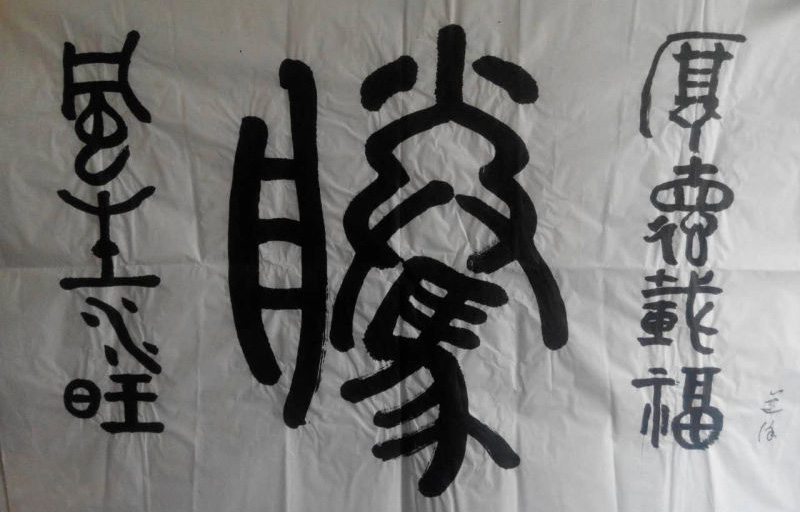 厚德載福
騰
風生水旺